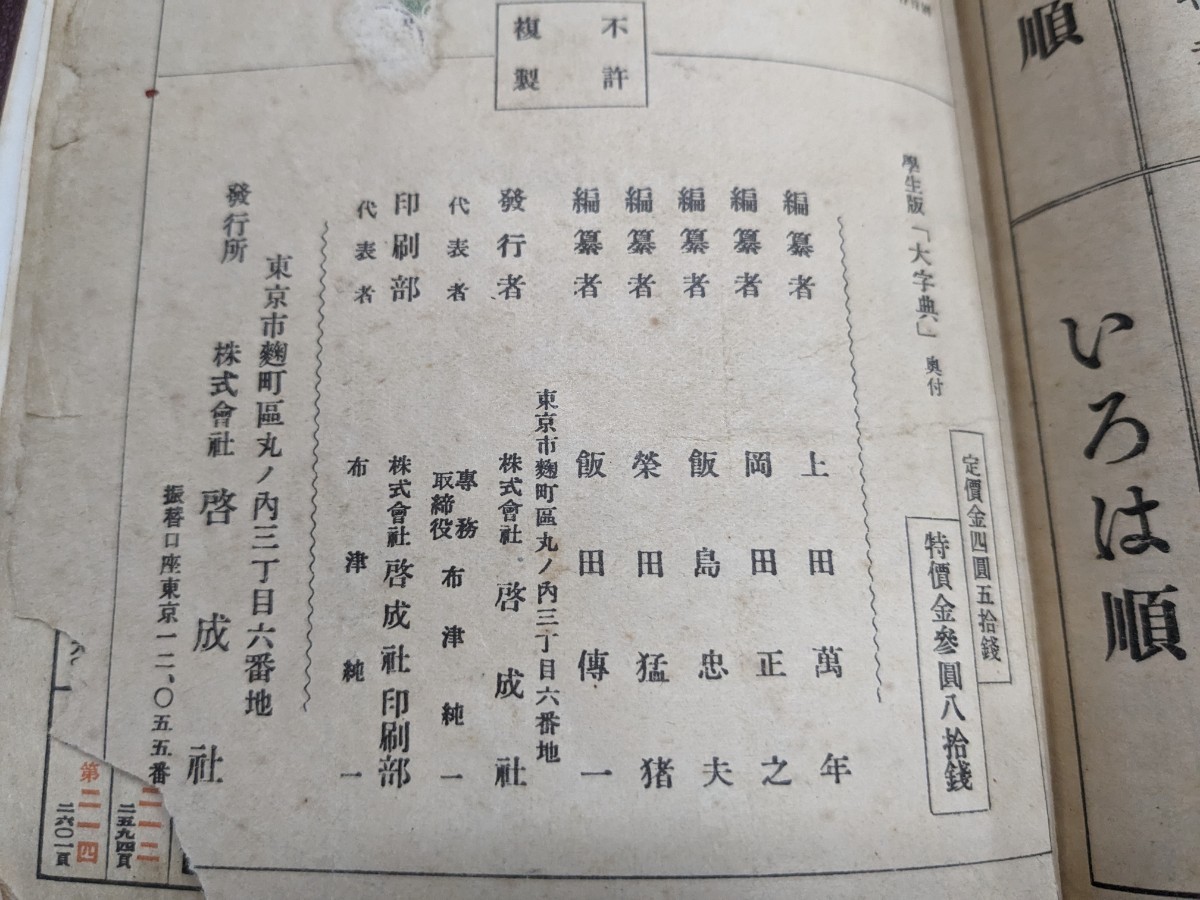 順
いろは順
不許
複製
學生版「大字典」奥付
定價金四圓五拾錢
特價金參圓八拾錢
編纂者 上田萬年
編纂者 岡田正之
編纂者 飯島忠夫
編纂者 榮田猛猪
編纂者 飯田傳一
東京市麴町區丸ノ內三丁目六番地
發行者 株式會社 啓成社
代表者 專務取締役 布津純一
印刷部 株式會社 啓成社印刷部
代表者 布津純一
東京市麴町區丸ノ內三丁目六番地
發行所 株式會社 啓成社
振替口座東京一二、〇五五番
第二一二
二五九四頁
第二一四
二六〇一頁